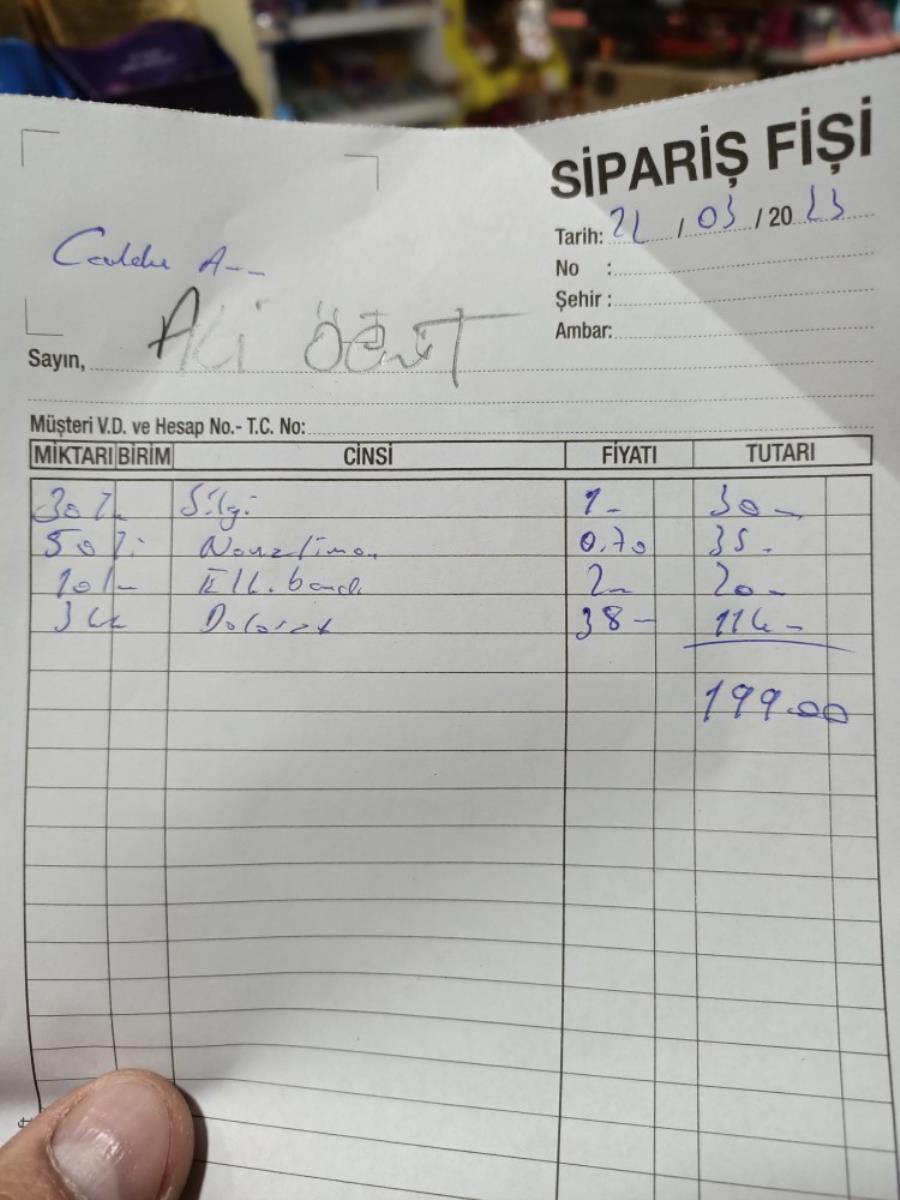 SİPARİŞ FİŞİ
Tarih: 21 / 03 / 2023
No :
Şehir :
Ambar:
Sayın, Ali ÖĞÜT
Müşteri V.D. ve Hesap No.- T.C. No:
MİKTARI BİRİM CİNSİ FİYATI TUTARI
30 Silgi 1- 30-
50 0.70 35-
10 2- 20-
3 38- 114-
199.00